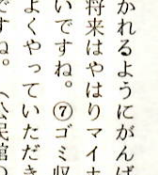 かれるようにがんば
将来はやはりマイホ
いですね。⑦ゴミ収
よくやっていただき
ですね。（公民館の